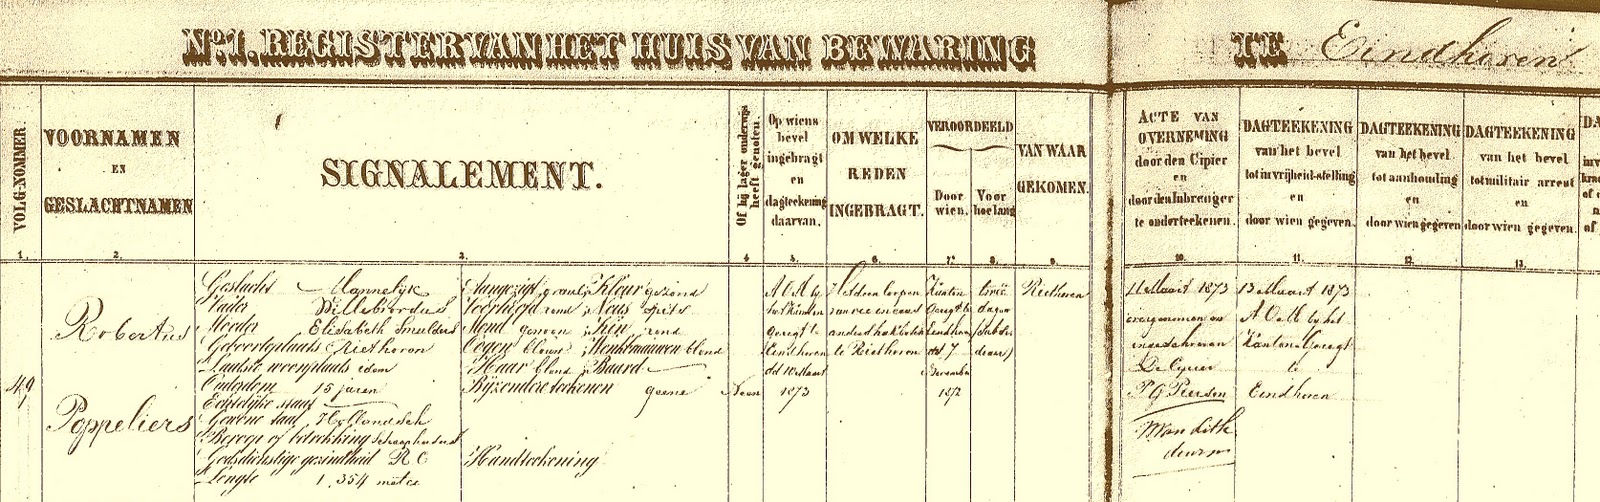 No. 1. REGISTER VAN HET HUIS VAN BEWARING TE Eindhoven
VOLG-NOMMER.
1.
VOORNAMEN
EN
GESLACHTNAMEN
2.
SIGNALEMENT.
3.
Of hij lager onderwijs
heeft genoten.
4
Op wiens
bevel
ingebragt
en
dagteekening
daarvan.
5.
OM WELKE
REDEN
INGEBRAGT.
6.
VEROORDEELD
Door
wien.
7.
Voor
hoe lang
8.
VAN WAAR
GEKOMEN.
9.
ACTE VAN
OVERNEMING
door den Cipier
en
door den Inbrenger
te onderteekenen.
10.
DAGTEEKENING
van het bevel
tot invrijheid-stelling
en
door wien gegeven.
11.
DAGTEEKENING
van het bevel
tot aanhouding
en
door wien gegeven
12.
DAGTEEKENING
van het bevel
tot militair arrest
en
door wien gegeven.
13.
49
Robertus
Poppeliers
Geslacht Mannelijk
Vader Willebrordus
Moeder Elisabeth Smulders
Geboorteplaats Riethoven
Laatste woonplaats idem
Ouderdom 15 jaren
Echtelijke staat
Gewone taal Hollandsch
Beroep of betrekking
Godsdienstige gezindheid R C
Lengte 1,354 meter
Aangezigt Kleur gezond
Voorhoofd rond Neus spits
Mond gewoon Kin rond
Oogen blauw Wenkbrauwen blond
Haar blond Baard
Bijzondere teekenen geene
Handteekening
Neen
Eindhoven
dd 10 Maart
1873
te Riethoven
Kanton
Geregt te
Eindhoven
dd 7
December
1872
twee
dagen
Riethoven
11 Maart 1873
overgenomen en
ingeschreven
De Cipier
13 Maart 1873
Kanton Geregt
te
Eindhoven